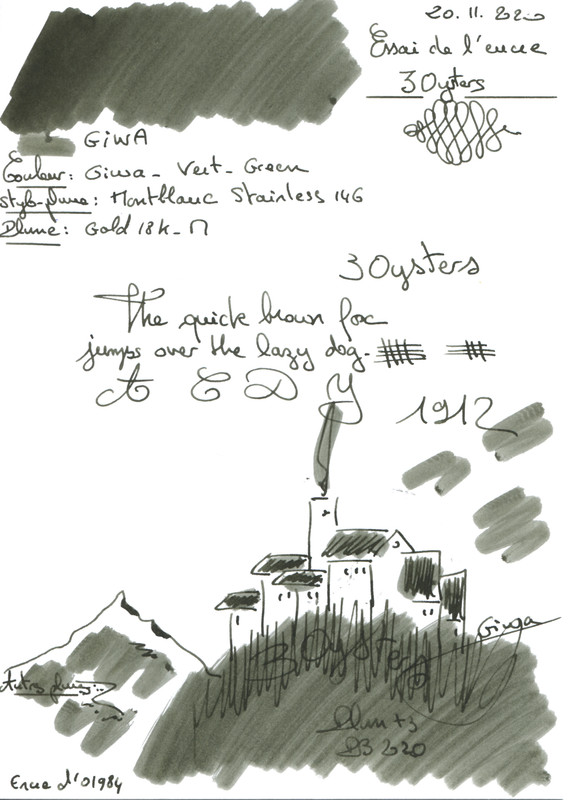 20.11.2020
Essai de l'encre
3 Oysters
GiWA
Couleur: Giwa - Vert - Green
Stylo-plume: Montblanc Stainless 146
Plume: Gold 18k - M
3 Oysters
The quick brown fox
jumps over the lazy dog.
A C D Y
1912
3 Oysters
Giwa
Autres plumes
03 2020
Encre d'01984